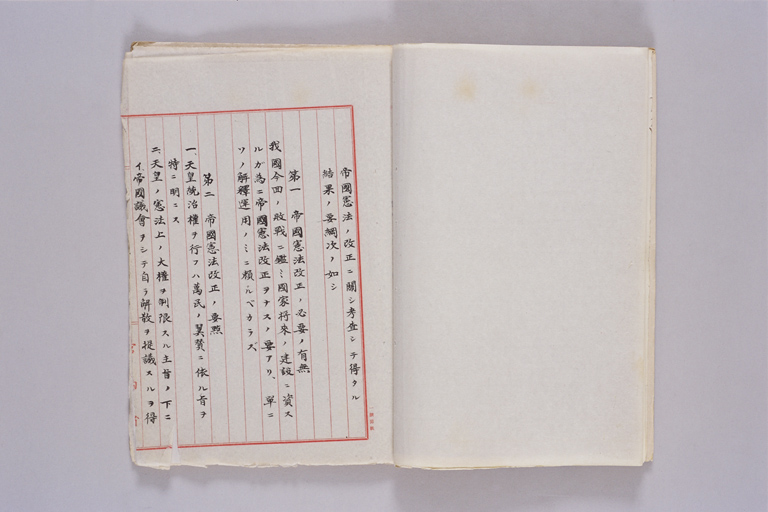 帝國憲法ノ改正ニ關シ考査シテ得タル
結果ノ要綱次ノ如シ
第一 帝國憲法改正ノ必要ノ有無
我國今回ノ敗戰ニ鑑ミ國家將來ノ建設ニ資ス
ルガ為ニ帝國憲法改正ヲナスノ要アリ、單ニ
ソノ解釋運用ノミニ頼ルベカラズ
第二 帝國憲法改正ノ要點
一、天皇統治權ヲ行フハ萬民ノ翼賛ニ依ル旨ヲ
特ニ明ニス
二、天皇ノ憲法上ノ大權ヲ制限スル主旨ノ下ニ
イ、帝國議會ヲシテ自ラ解散ヲ提議スルヲ得